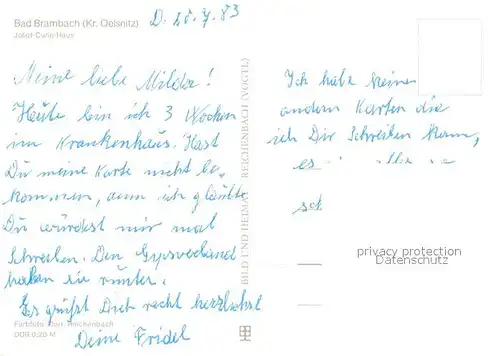 Bad Brambach (Kr. Oelsnitz)
Joliot-Curie-Haus
D. 20.7.83
Meine liebe Milda!
Heute bin ich 3 Wochen
im Krankenhaus. Hast
Du meine Karte nicht be-
kommen, denn ich glaubte
Du würdest mir mal
schreiben. Den Gypsverband
haben sie runter.
Es grüßt Dich recht herzlichst
Deine Fridel
Farbfoto: Reichenbach
DDR 0,20 M
BILD UND HEIMAT REICHENBACH (VOGTL)
Ich habe keine
andern Karten die
ich Dir schreiben kann,
es
sch
privacy protection
Datenschutz